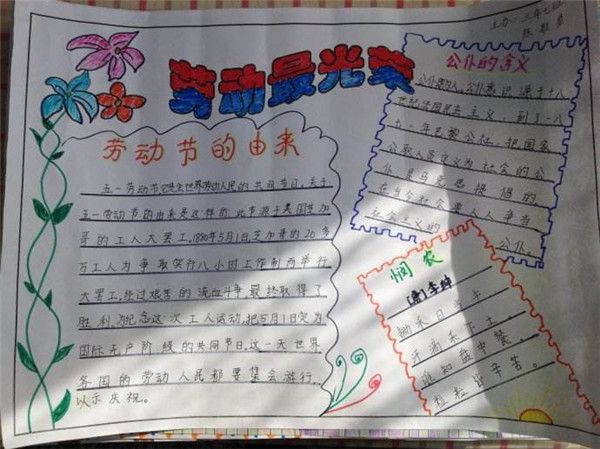 主办：三年七班
劳动最光荣
劳动节的由来
五一劳动节它是全世界劳动人民的共同节日。关于
五一劳动节的由来是这样的：此节源于美国芝加
哥的工人大罢工，1886年5月1日，芝加哥的20多
万工人为争取实行八小时工作制而举行
大罢工，经过艰苦的流血斗争最终取得了
胜利，为纪念这次工人运动，把5月1日定为
国际无产阶级的共同节日。这一天世界
各国的劳动人民都要集会游行，
以示庆祝。
公仆的含义
公仆意识源于十八
世纪法国民主主义，到了一八
七一年巴黎公社，把国家
公职人员定义为社会的公
仆是马克思提倡的。
在当今社会要人人争当
社会主义的
公仆。
悯农
[唐]李绅
锄禾日当午，
汗滴禾下土。
谁知盘中餐，
粒粒皆辛苦。